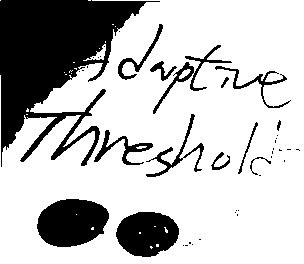 Adaptive
Threshold